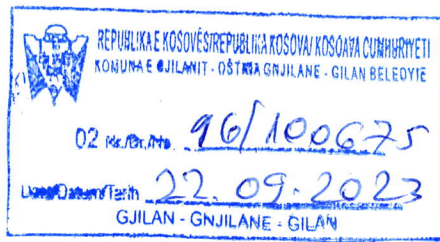 REPUBLIKA E KOSOVËS/REPUBLIKA KOSOVA/ KOSOAVA CUMHURIYETI
KOMUNA E GJILANIT - OŠTINA GNJILANE - GILAN BELEDYIE
02 Nr./Br./No. 96/100675
22.09.2023
GJILAN - GNJILANE - GILAN